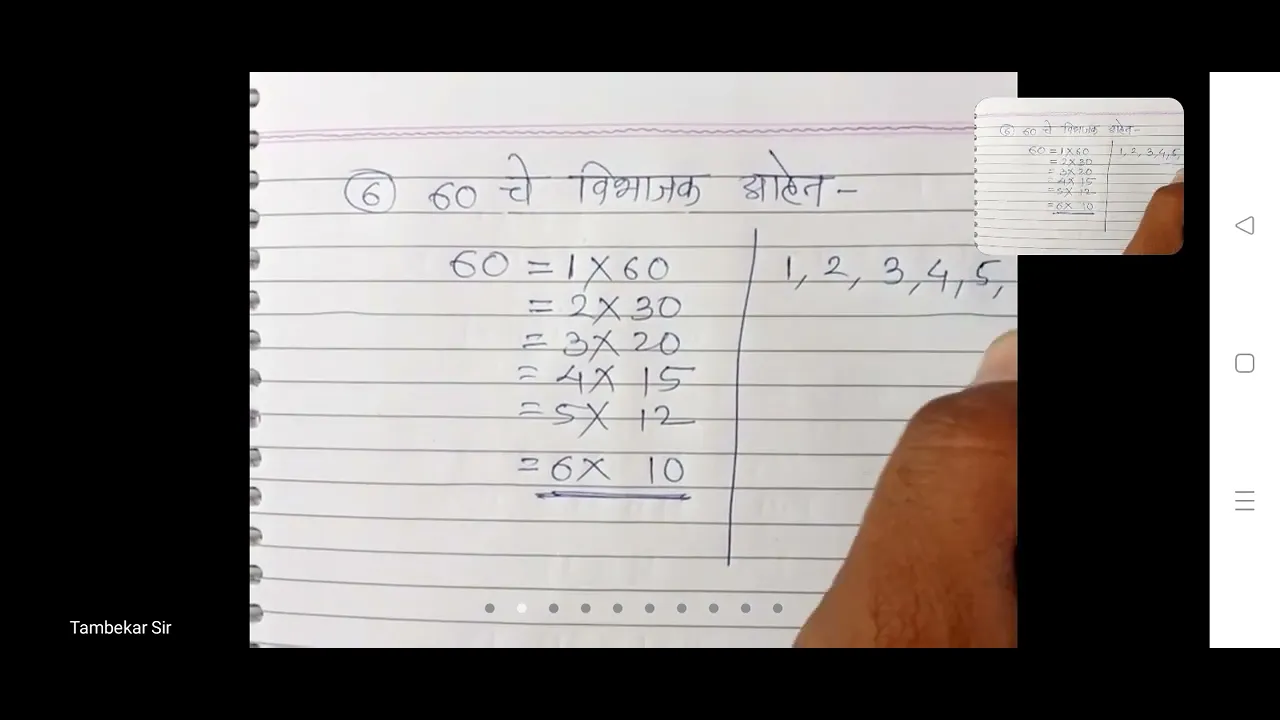 ⑥ 60 चे विभाजक आहेत-
60 = 1 X 60
= 2 X 30
= 3 X 20
= 4 X 15
= 5 X 12
= 6 X 10
1, 2, 3, 4, 5,
⑥ 60 चे विभाजक आहेत-
60 = 1 X 60
= 2 X 30
= 3 X 20
= 4 X 15
= 5 X 12
= 6 X 10
1, 2, 3, 4, 5,
Tambekar Sir